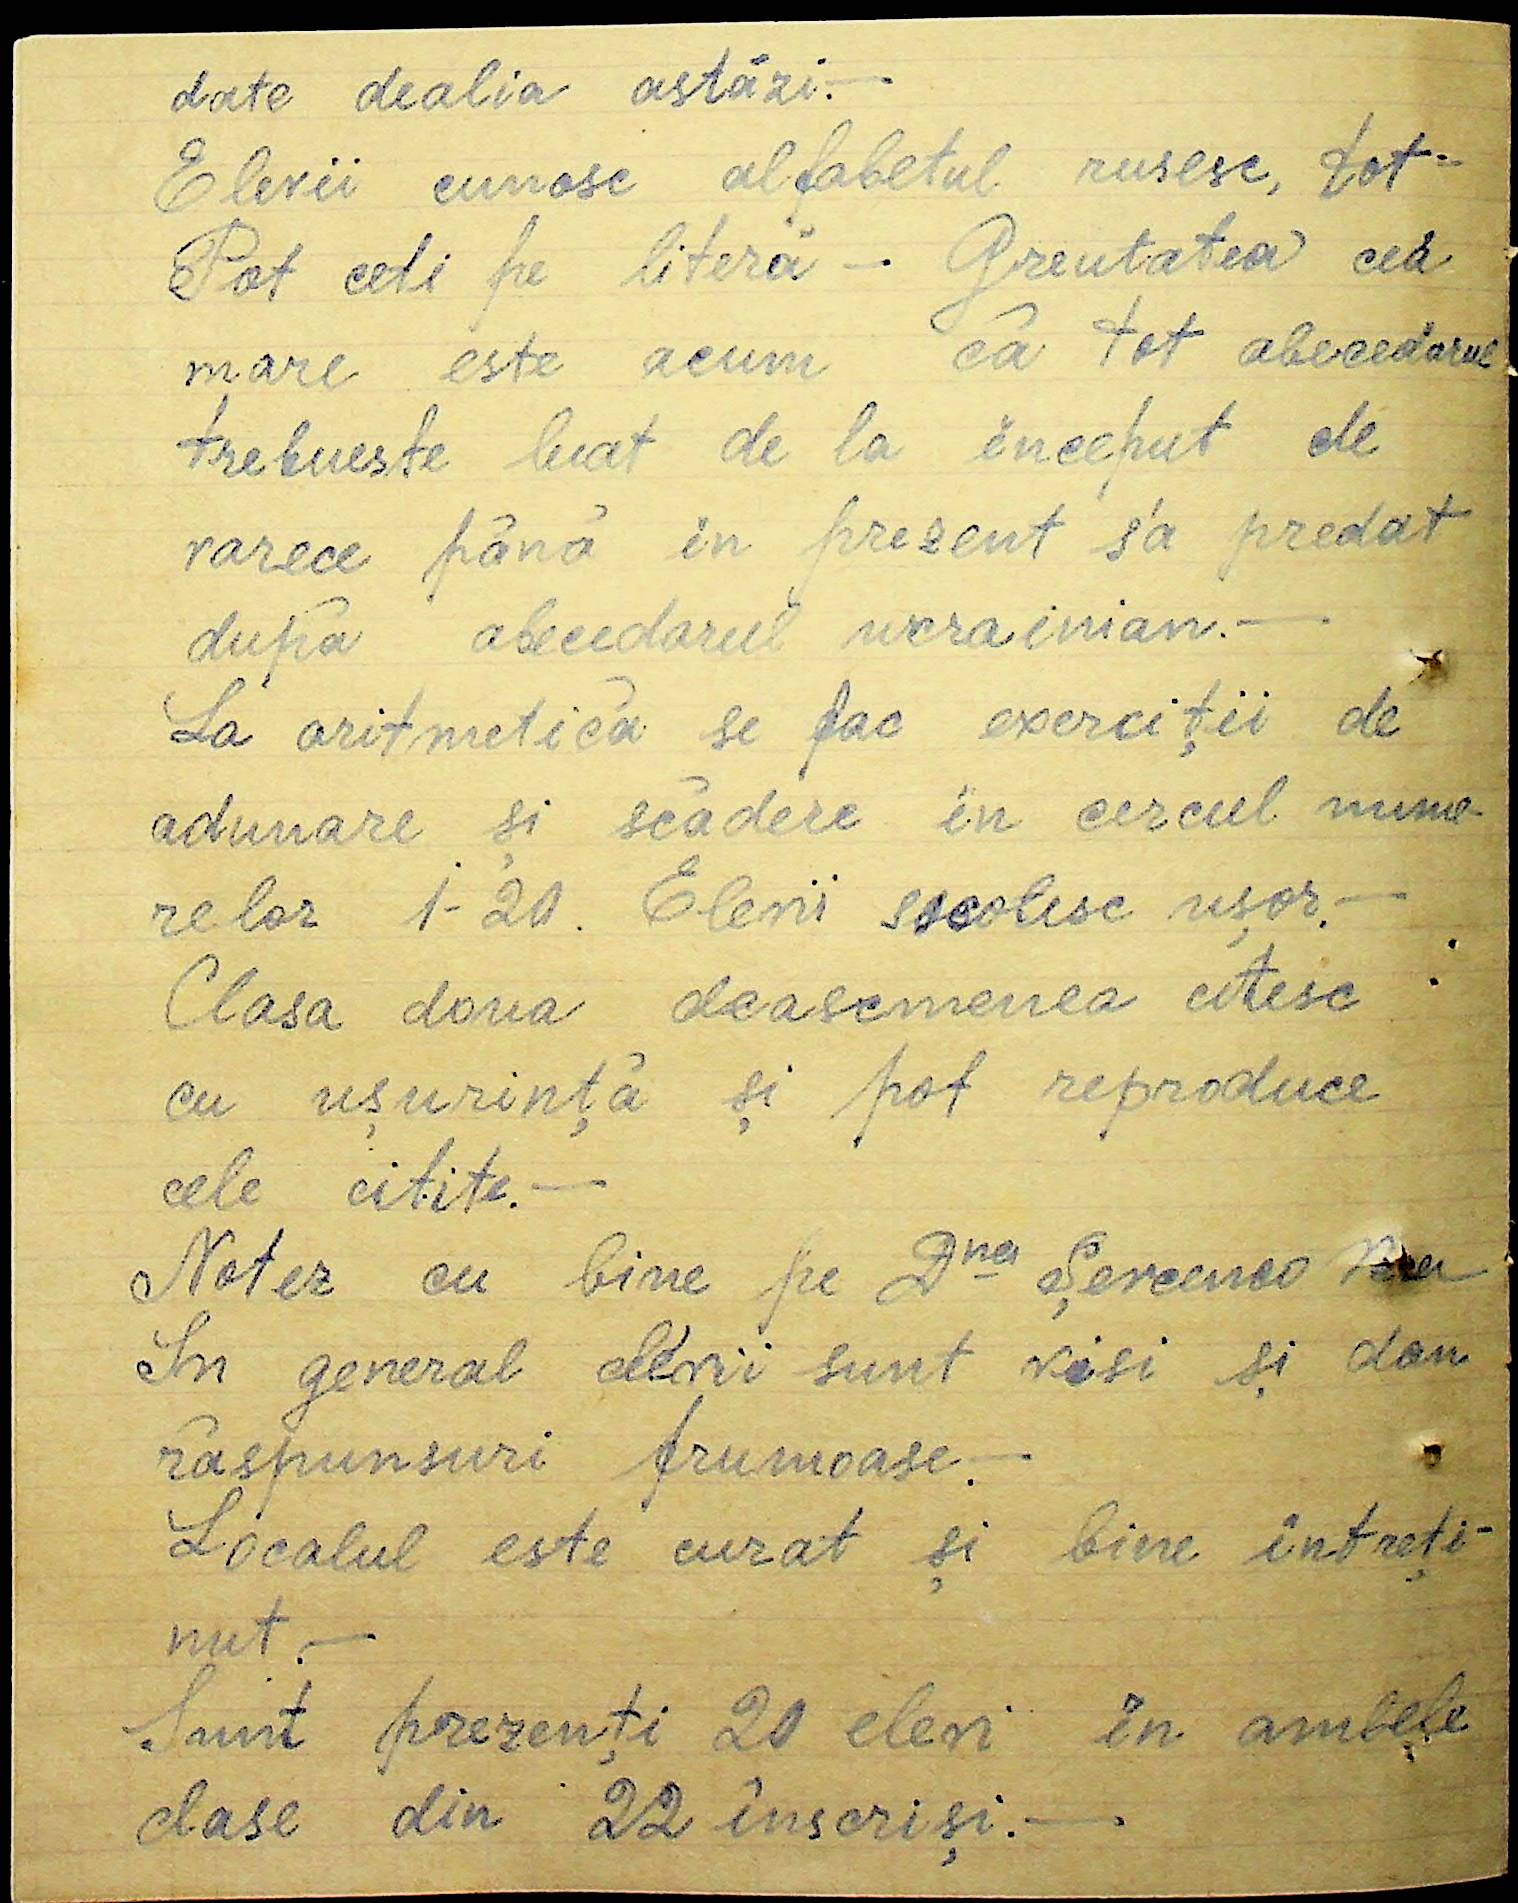 date dealia astăzi.—
Elevii cunosc alfabetul rusesc, tot-
Pot ceti pe literă — Greutatea cea
mare este acum că tot abecedarul
trebueste luat de la început de
varece până in prezent s'a predat
după abecedarul ucrainian.—
La aritmetică se fac exerciții de
adunare și scădere in cercul nume-
relor 1-20. Elevii socotesc ușor.—
Clasa doua deasemenea citesc
cu ușurință și pot reproduce
cele citite.—
Notez cu bine pe Dna Șevcenco
In general elevii sunt visi și dau
răspunsuri frumoase.—
Localul este curat și bine întreți-
nut.—
Sunt prezenți 20 elevi in ambele
clase din 22 înscriși.—